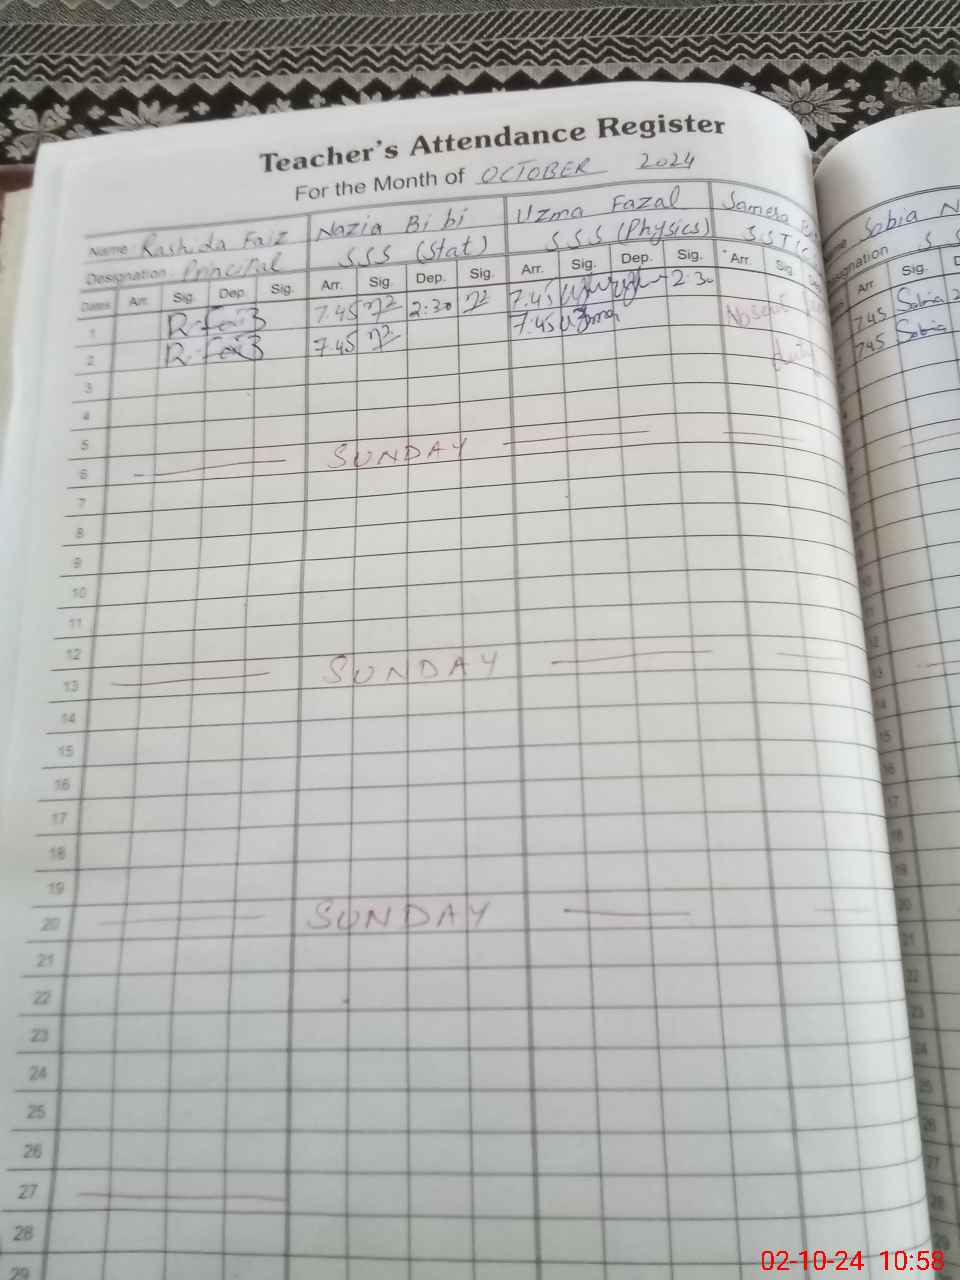 Teacher's Attendance Register
For the Month of OCTOBER 2024
Name Rashida Faiz Nazia Bibi Uzma Fazal Samera
Designation Principal SSS (Stat) SSS (Physics)
Dates Arr. Sig. Dep. Sig. Arr. Sig. Dep. Sig. Arr. Sig. Dep. Sig. Arr. Sig.
1 R.Faiz 7.45 2:30 7.45 2.30 Absent
2 R.Faiz 7.45 7.45 Uzma
3
4
5
6 SUNDAY
7
8
9
10
11
12
13 SUNDAY
14
15
16
17
18
19
20 SUNDAY
21
22
23
24
25
26
27
28
29
Sobia N
Designation S S
Arr. Sig. D
745 Sobia 2
745 Sobia
12
13
15
16
17
18
19
20
21
22
23
24
25
26
27
28
29
02-10-24 10:58